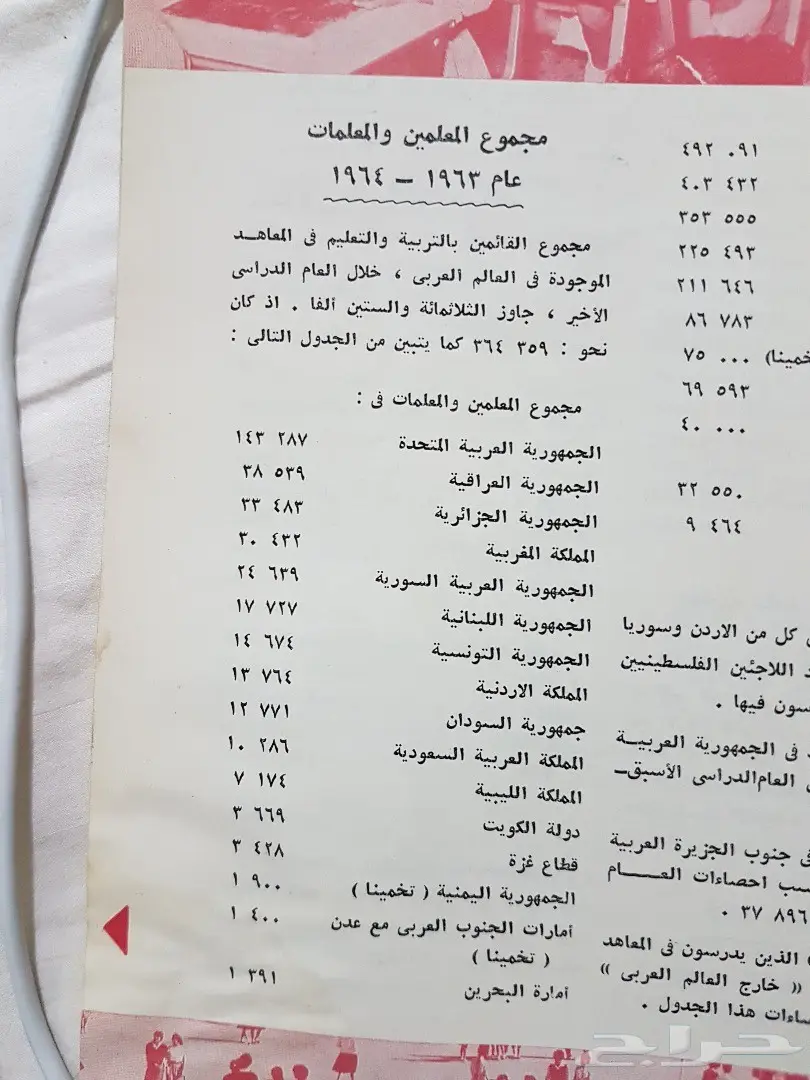 ٤٩٢ ٠٩١
٤٠٣ ٤٣٢
٣٥٣ ٥٥٥
٢٢٥ ٤٩٣
٢١١ ٦٤٦
٨٦ ٧٨٣
٧٥ ٠٠٠
٦٩ ٥٩٣
٤٠ ٠٠٠
٣٢ ٥٥٠
٩ ٤٦٤
كل من الاردن وسوريا
اللاجئين الفلسطينيين
فيها .
فى الجمهورية العربيـــة
العام الدراسى الأسبق ــ
جنوب الجزيرة العربية
احصاءات العـــــام
٣٧ ٨٩٦ .
الذين يدرسون فى المعاهد
« خارج العالم العربى »
هذا الجدول .
مجموع المعلمين والمعلمات
عام ١٩٦٣ ــ ١٩٦٤
مجموع القائمين بالتربية والتعليم فى المعاهــد
الموجودة فى العالم العربى ، خلال العام الدراسى
الأخير ، جاوز الثلاثمائة والستين ألفا . اذ كان
نحو : ٣٥٩ ٣٦٤ كما يتبين من الجدول التالى :
مجموع المعلمين والمعلمات فى :
الجمهورية العربية المتحدة ١٤٣ ٢٨٧
الجمهورية العراقية ٣٨ ٥٣٩
الجمهورية الجزائرية ٣٣ ٤٨٣
المملكة المغربية ٣٠ ٤٣٢
الجمهورية العربية السورية ٢٤ ٦٣٩
الجمهورية اللبنانية ١٧ ٧٢٧
الجمهورية التونسية ١٤ ٦٧٤
المملكة الاردنية ١٣ ٧٦٤
جمهورية السودان ١٢ ٧٧١
المملكة العربية السعودية ١٠ ٢٨٦
المملكة الليبية ٧ ١٧٤
دولة الكويت ٣ ٦٦٩
قطاع غزة ٣ ٤٢٨
الجمهورية اليمنية ( تخمينا ) ١ ٩٠٠
أمارات الجنوب العربى مع عدن ١ ٤٠٠
( تخمينا )
أمارة البحرين ١ ٣٩١
حراج